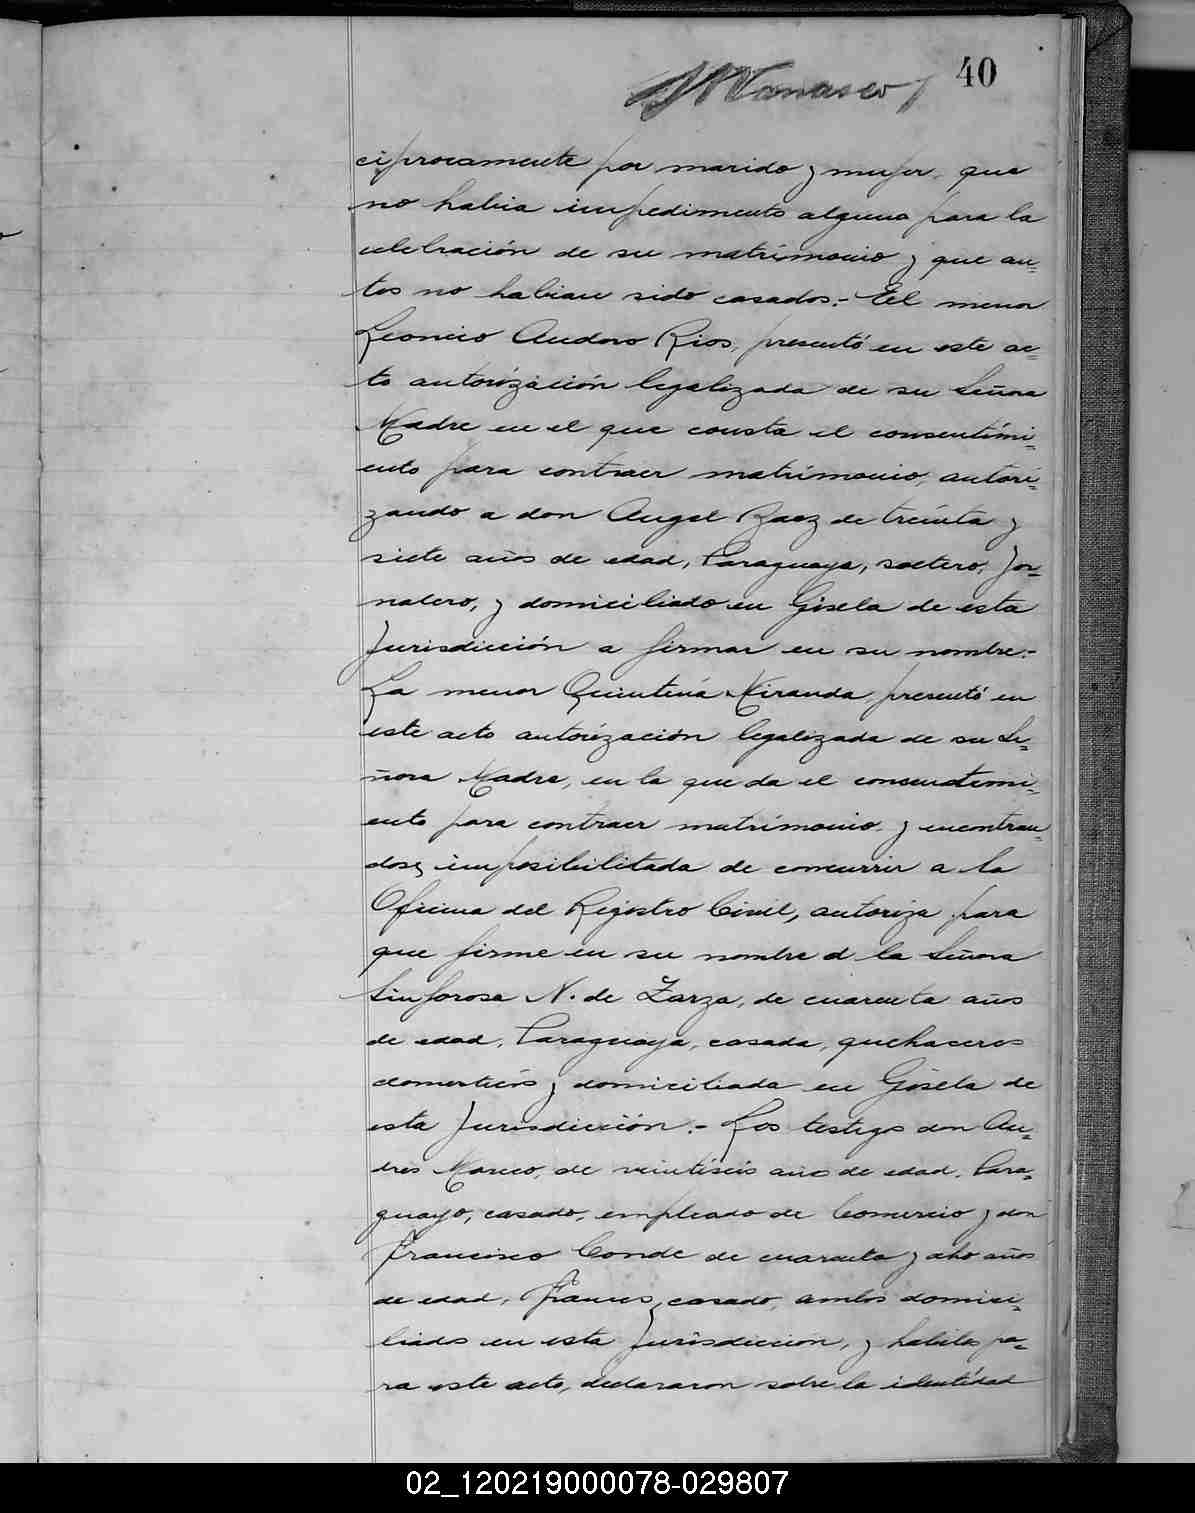 40
ciprocamente por marido y mujer, que
no habia impedimento alguno para la
celebración de su matrimonio y que an-
tes no habian sido casados.- El menor
Leoncio Audoro Rios, presentó en este ac-
to autorización legalizada de su Señora
Madre en el que consta el consentimi-
ento para contraer matrimonio, autori-
zando a don Angel Baez de treinta y
siete años de edad, Paraguaya, soltero, jor-
nalero, y domiciliado en Gisela de esta
Jurisdicción a firmar en su nombre.-
La menor Quintina Miranda, presentó en
este acto autorización legalizada de su Se-
ñora Madre, en la que da el consentimi-
ento para contraer matrimonio y encontran-
dose imposibilitada de concurrir a la
Oficina del Registro Civil, autoriza para
que firme en su nombre a la Señora
Sinforosa N. de Zarza, de cuarenta años
de edad, Paraguaya, casada, quehaceros
domesticos y domiciliada en Gisela de
esta Jurisdicción.- Los testigos don An-
dres Mareco, de veintiseis años de edad, Para-
guayo, casado, empleado de Comercio y don
Francisco Conde de cuarenta y ocho años
de edad, Frances, casado, ambos domici-
liados en esta Jurisdiccion, y habiles pa-
ra este acto, declararon sobre la identidad
02_120219000078-029807